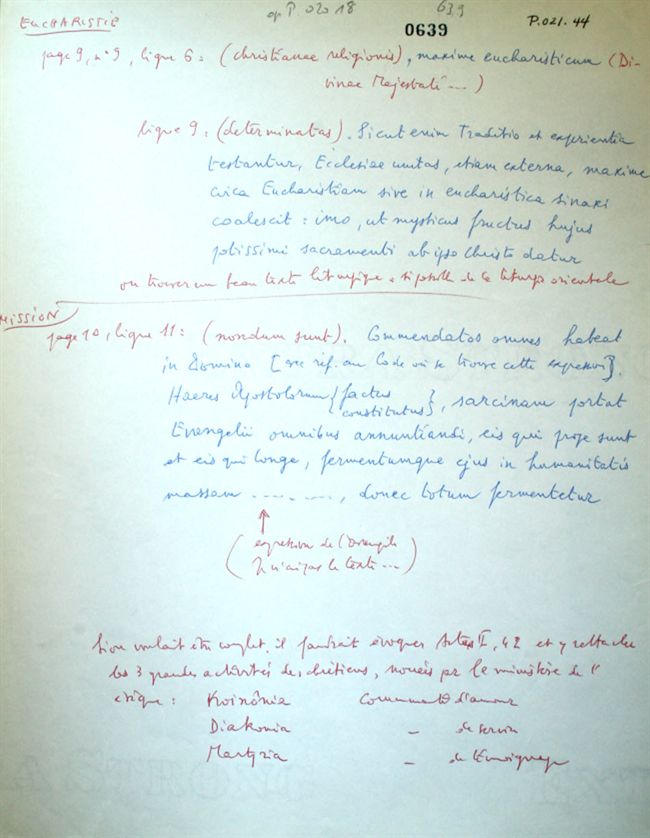 op P. 020 18
639
P.021.44
0639
EUCHARISTIE
page 9, n° 9, ligne 6 : (christianae religionis), maxime eucharisticum (Di-
vinae Majestati ...)
ligne 9 : (determinatas). Sicut enim Traditio et experientia
testantur, Ecclesiae unitas, etiam externa, maxime
circa Eucharistiam sive in eucharistica sinaxi
coalescit : imo, ut mysticus fructus hujus
potissimi sacramenti ab ipso Christo datur
ou trouver un beau texte liturgique, si possible de la liturgie orientale
MISSION
page 10, ligne 11 : (nondum sunt). Commendatos omnes habeat
in Domino [avec réf. au Code où se trouve cette expression].
Haeres Apostolorum {factus
constitutus}, sarcinam portat
Evangelii omnibus annuntiandi, eis qui prope sunt
et eis qui longe, fermentumque ejus in humanitatis
massam ..........., donec totum fermentetur
(expression de l'Evangile
Je n'ai pas le texte ...)
Si on voulait être complet, il faudrait évoquer Actes II, 42 et y rattacher
les 3 grandes activités des chrétiens, nouées par le ministère de l'
évêque : Koinônia Communauté d'amour
Diakonia - de service
Martyria - de témoignage